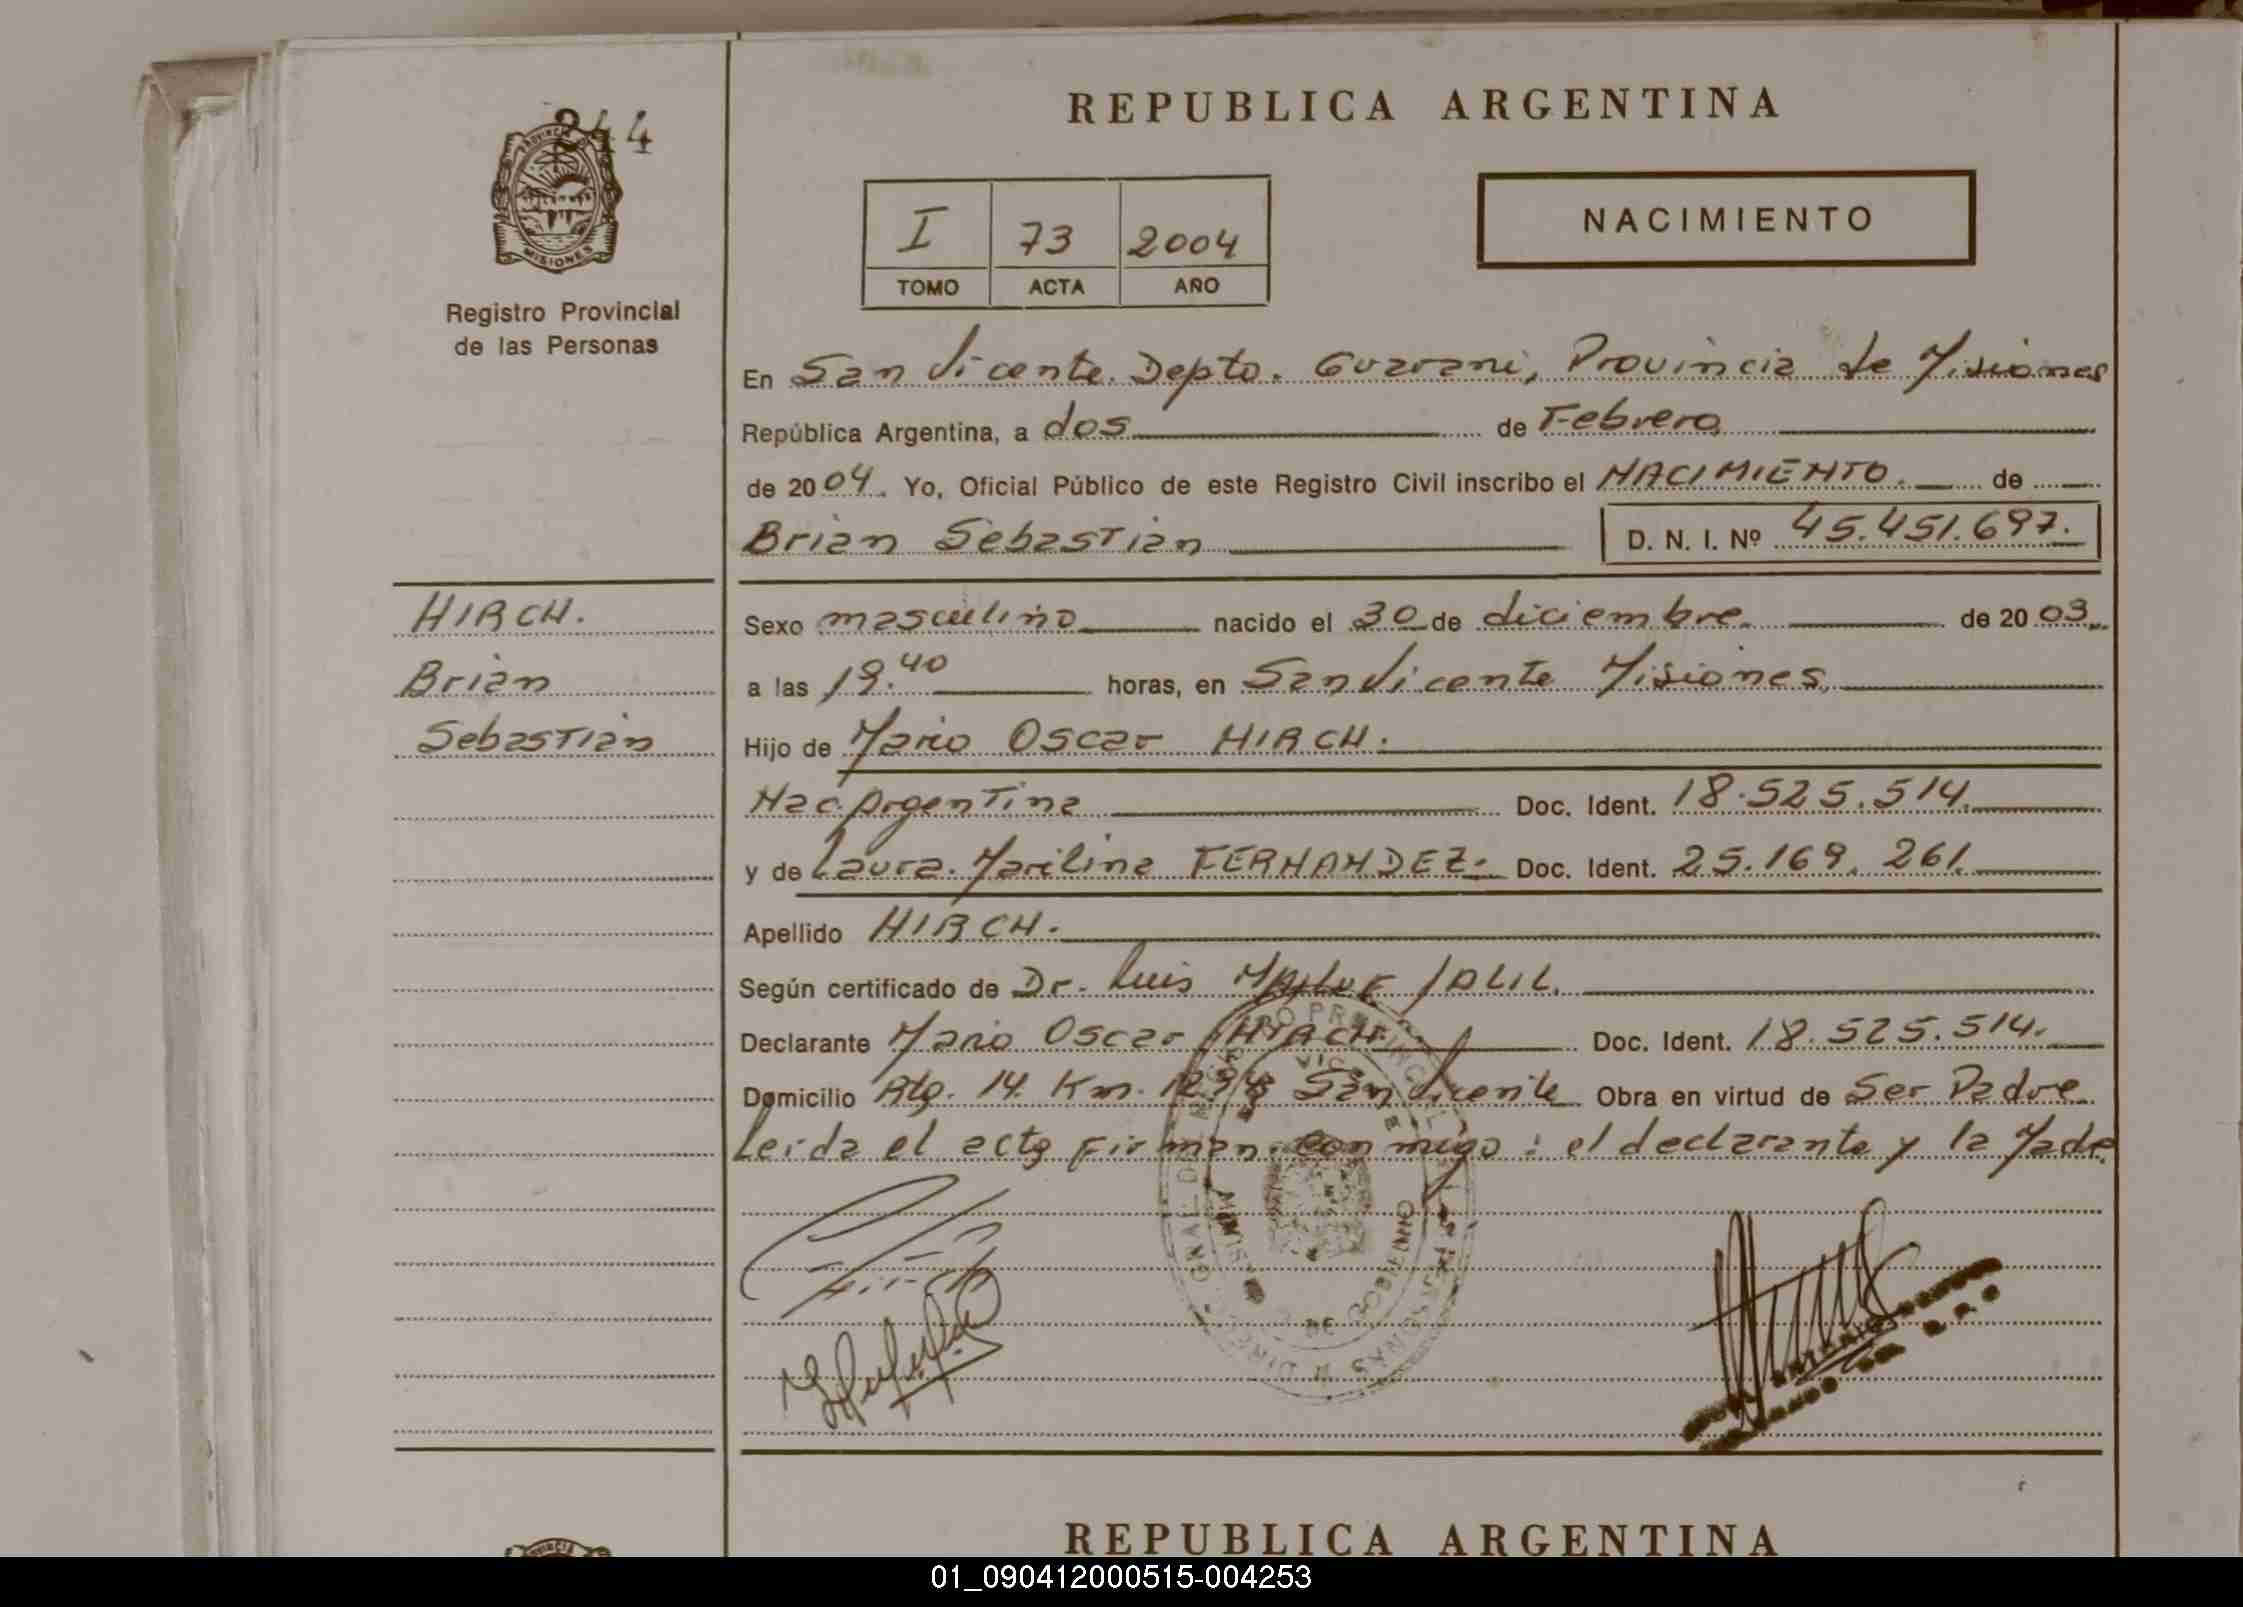 244
PROVINCIA DE
MISIONES
Registro Provincial
de las Personas
REPUBLICA ARGENTINA
I 73 2004
TOMO ACTA AÑO
NACIMIENTO
En San Vicente. Depto. Guarani, Provincia de Misiones
República Argentina, a dos de Febrero
de 2004. Yo, Oficial Público de este Registro Civil inscribo el NACIMIENTO. de
Brian Sebastian D. N. I. Nº 45.451.697.
HIRCH.
Brian
Sebastian
Sexo masculino nacido el 30 de diciembre. de 2003
a las 19.40 horas, en San Vicente Misiones
Hijo de Mario Oscar HIRCH.
Nac. Argentina Doc. Ident. 18.525.514.
y de Laura. Marilina FERNANDEZ. Doc. Ident. 25.169.261.
Apellido HIRCH.
Según certificado de Dr. Luis JALIL.
Declarante Mario Oscar HIRCH. Doc. Ident. 18.525.514.
Domicilio Km. San Vicente Obra en virtud de Ser Padre
Leida el acta Firman conmigo: el declarante y la Madre
DE GOBIERNO
REPUBLICA ARGENTINA
PROVINCIA
01_090412000515-004253